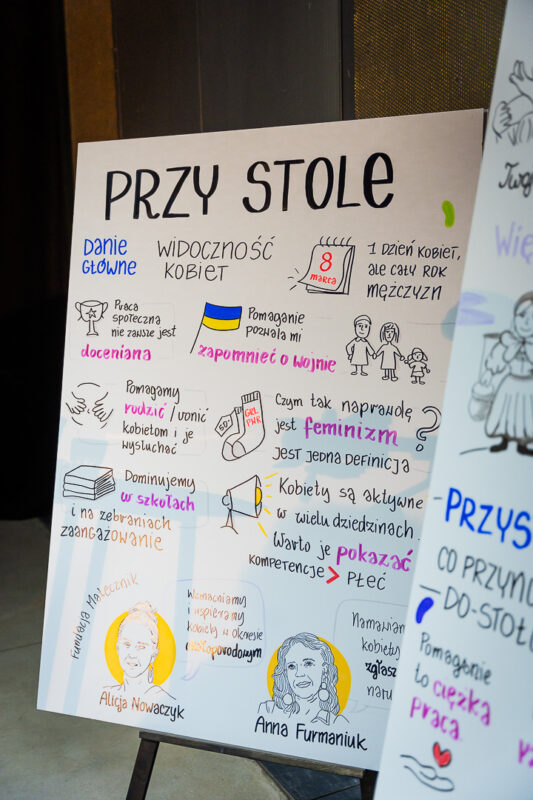 PRZY STOLE
DANIE
GŁÓWNE
WIDOCZNOŚĆ
KOBIET
8
MARCA
1 DZIEŃ KOBIET,
ale CAŁY ROK
MĘŻCZYZN
Praca
społeczna
nie zawsze jest
doceniana
Pomaganie
pozwala mi
zapomnieć o wojnie
Pomagamy
rodzić / ronić
kobietom i je
wysłuchać
50
GRL
PWR
Czym tak naprawdę
jest feminizm
?
JEST JEDNA DEFINICJA
Dominujemy
w szkołach
i na zebraniach
zaangażowanie
Kobiety są aktywne
w wielu dziedzinach.
Warto je pokazać
kompetencje > płeć
Fundacja Małecznik
Wzmacniamy
i wspieramy
kobiety w okresie
okołoporodowym
Alicja Nowaczyk
Namawiam
kobiety
zgłasz
Anna Furmaniuk
Twó
Wię
PRZYS
CO PRZYNO
DO-STOŁ
Pomaganie
to ciężka
praca